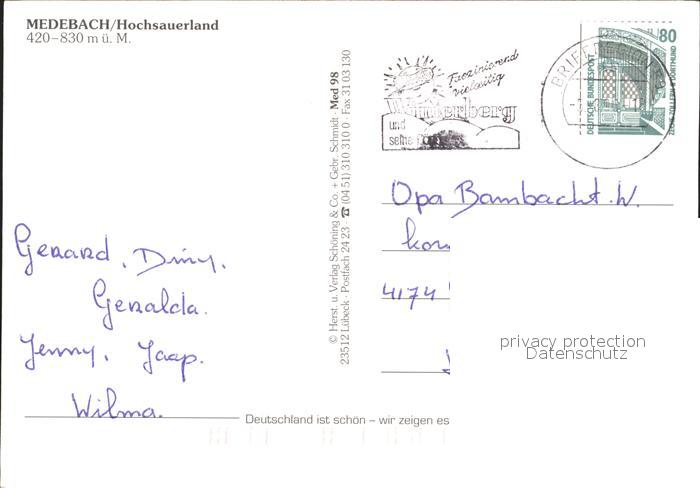 MEDEBACH/Hochsauerland
420–830 m ü. M.
Gerard, Diny,
Geralda.
Jenny, Jaap.
Wilma.
© Herst. u. Verlag Schöning & Co. + Gebr. Schmidt · Med 98
23512 Lübeck · Postfach 24 23 · ☎ (04 51) 310 310 0 · Fax 31 03 130
Faszinierend
vielseitig
Winterberg
und
seine
BRIEFZENTRUM
80
DEUTSCHE BUNDESPOST
ZECHE ZOLLERN II DORTMUND
Opa Bambacht. W.
4174
privacy protection
Datenschutz
Deutschland ist schön – wir zeigen es